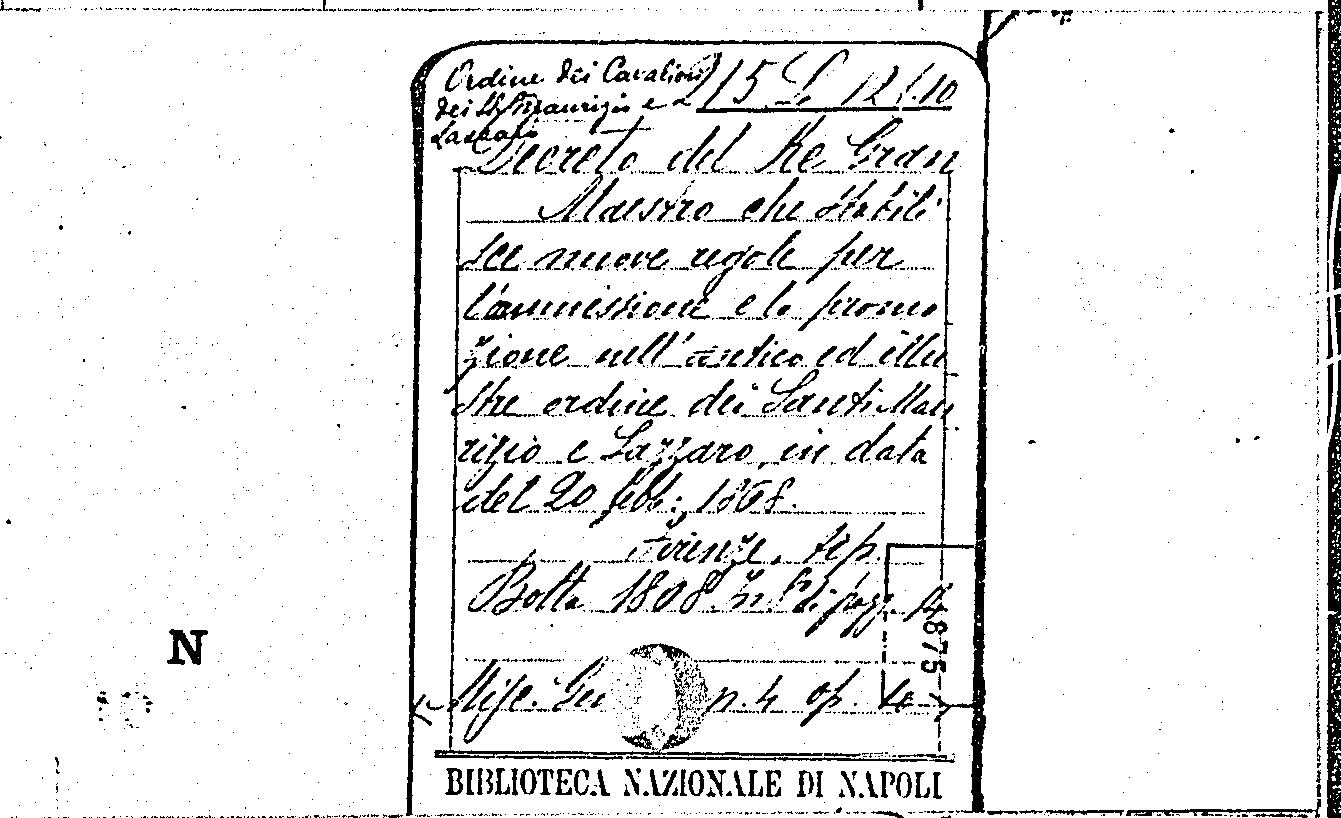 Ordine dei Cavalieri
dei SS. Maurizio e
Lazzaro
15 L 12 (.10
Decreto del Re Gran
Maestro che stabili
sce nuove regole per
l'ammissione e la promo
zione nell'antico ed illu
stre ordine dei Santi Mau
rizio e Lazzaro, in data
del 20 febb: 1868.
Firenze, tip.
Botta 1868. In 8° di pagg. 14
875
Misc. n. 4 op.
N
BIBLIOTECA NAZIONALE DI NAPOLI